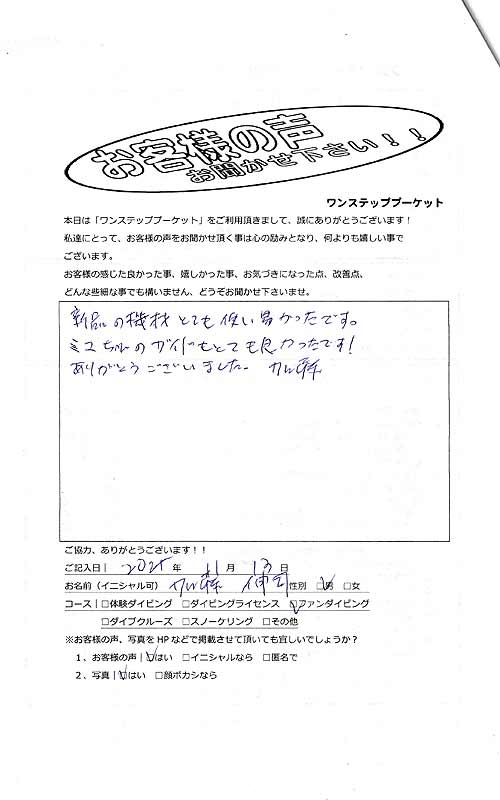 お客様の声
お聞かせ下さい！！
ワンステッププーケット
本日は「ワンステッププーケット」をご利用頂きまして、誠にありがとうございます！
私達にとって、お客様の声をお聞かせ頂く事は心の励みとなり、何よりも嬉しい事で
ございます。
お客様の感じた良かった事、嬉しかった事、お気づきになった点、改善点、
どんな些細な事でも構いません、どうぞお聞かせ下さいませ。
新品の機材とても使い易かったです。
ミユちゃんのガイドもとても良かったです!
ありがとうございました。 加藤
ご協力、ありがとうございます！！
ご記入日｜ 2025 年 11 月 13 日
お名前（イニシャル可） 加藤 伸司 性別 ☑男 □女
コース｜□体験ダイビング □ダイビングライセンス ☑ファンダイビング
□ダイブクルーズ □スノーケリング □その他
※お客様の声、写真をHPなどで掲載させて頂いても宜しいでしょうか？
１、お客様の声｜☑はい □イニシャルなら □匿名で
２、写真｜☑はい □顔ボカシなら